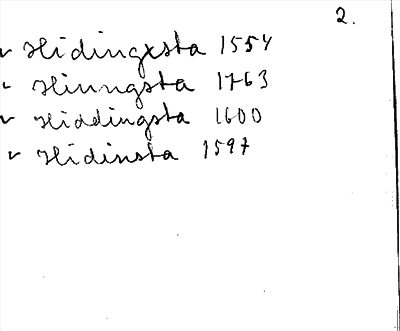 2.
v Hidingxsta 1554
v Hinngsta 1763
v Hiddingsta 1600
v Hidinsta 1597